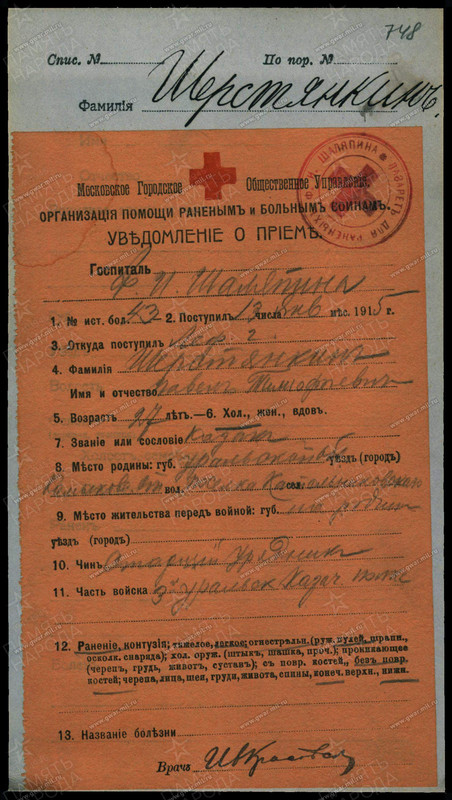 748
Спис. № По пор. №
Фамилія Шерстянкинъ.
Московское Городское Общественное Управленіе.
ОРГАНИЗАЦІЯ ПОМОЩИ РАНЕНЫМЪ и БОЛЬНЫМЪ ВОИНАМЪ.
УВѢДОМЛЕНІЕ О ПРІЕМѢ.
Госпиталь
Ф. И. Шаляпина
1. № ист. бол. 43 2. Поступилъ 13 числа янв мѣс. 1915 г.
3. Откуда поступилъ
4. Фамилія Шерстянкинъ
Имя и отчество Тимофеевичъ
5. Возрастъ 27 лѣтъ.—6. Хол., жен., вдов.
7. Званіе или сословіе Казакъ
8. Мѣсто родины: губ. Уральской уѣздъ (городъ)
вол. сел.
9. Мѣсто жительства передъ войной: губ. на родин
уѣздъ (городъ)
10. Чинъ Старшій Урядникъ
11. Часть войска Уральск Казач полкъ
12. Раненіе, контузія; тяжелое, легкое; огнестрѣльн. (руж. пулей, шрапн.,
осколк. снаряда); хол. оруж. (штыкъ, шашка, проч.); проникающее
(черепъ, грудь, животъ, суставъ); съ повр. костей, безъ повр.
костей; черепа, лица, шеи, груди, живота, спины, конеч. верхн., нижн.
13. Названіе болѣзни
Врачъ